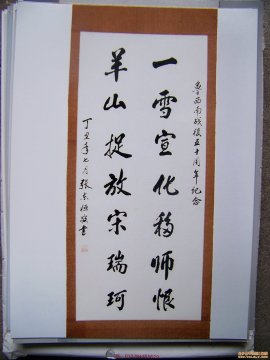 魯西南战役五十周年纪念
一雪宣化移师恨
羊山捉放宋瑞珂
丁丑年七月张书